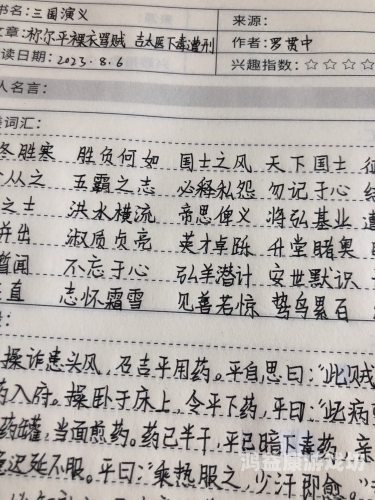 书名:三国演义
来源:
文章:祢尔平裸衣骂贼 吉太医下毒遭刑
作者:罗贯中
读日期:2023.8.6
兴趣指数:☆☆☆☆
人名言:
词汇:
冬胜寒 胜负何如 国士之风 天下国士
众从之 五霸之志 必释私怨 勿记于心
之士 洪水横流 帝思俾义 将弘基业
并出 淑质贞亮 英才卓跞 升堂睹奥
暂闻 不忘于心 弘羊潜计 安世默识
直 志怀霜雪 见善若惊 鸷鸟累百
操诈患头风,召吉平用药。平自思曰:“此贼
药入府。操卧于床上,令平下药,平曰:“此病
药罐,当面煎药。药已半干,平已暗下毒药,亲
迟延不服。平曰:“乘热服之,少汗即愈。”